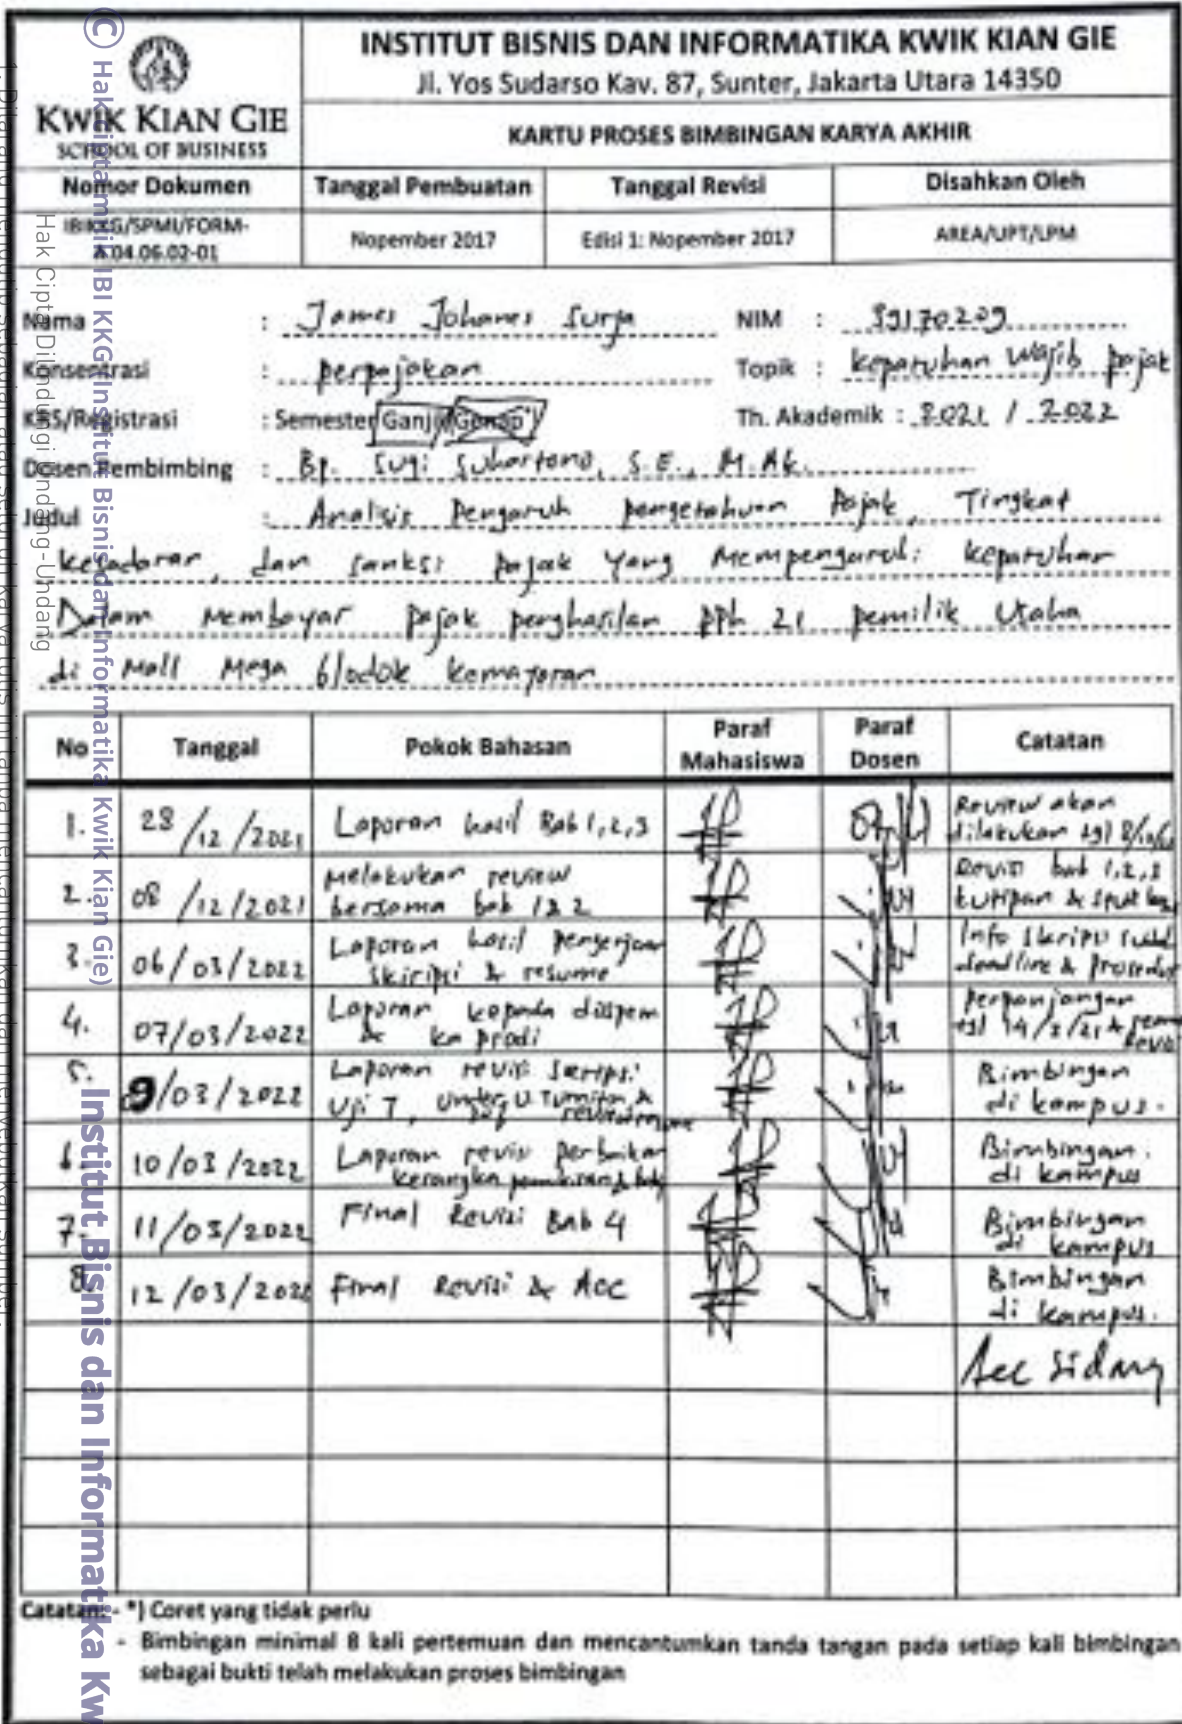 INSTITUT BISNIS DAN INFORMATIKA KWIK KIAN GIE
Jl. Yos Sudarso Kav. 87, Sunter, Jakarta Utara 14350
KWIK KIAN GIE
SCHOOL OF BUSINESS
KARTU PROSES BIMBINGAN KARYA AKHIR
Nomor Dokumen Tanggal Pembuatan Tanggal Revisi Disahkan Oleh
IBIKKG/SPMI/FORM-
A.04.06.02-01 Nopember 2017 Edisi 1: Nopember 2017 AREA/UPT/LPM
Nama : James Johanes Surja NIM :
Konsentrasi : perpajakan Topik : Kepatuhan Wajib pajak
KRS/Registrasi : Semester Ganjil/Genap*) Th. Akademik : 2021 / 2022
Dosen Pembimbing : Bp. Sugi Suhartono, S.E., M.Ak.
Judul : Analisis Pengaruh pengetahuan Pajak, Tingkat
kesadaran, dan sanksi pajak Yang Mempengaruhi kepatuhan
Dalam Membayar pajak penghasilan pph 21 pemilik Usaha
di Mall Mega Glodok Kemayoran
No Tanggal Pokok Bahasan Paraf Mahasiswa Paraf Dosen Catatan
1. /12/2021 Laporan hasil Bab 1,2,3 Review akan
dilakukan tgl
2. 08/12/2021 Melakukan review Revisi bab 1,2,3
bersama bab 1 & 2 kutipan &
3. 06/03/2022 Laporan hasil pengerjaan Info skripsi
skripsi & resume deadline & prosedur
4. 07/03/2022 Laporan kepada Perpanjangan
& ka prodi tgl
5. 9/03/2022 Laporan revisi Bimbingan
Uji T, Turnitin & di kampus.
6. 10/03/2022 Laporan revisi perbaikan Bimbingan
kerangka pemikiran & di kampus
7. 11/03/2022 Final Revisi Bab 4 Bimbingan
di kampus
8. 12/03/2022 Final Revisi & Acc Bimbingan
di kampus.
Acc Sidang
Catatan: - *) Coret yang tidak perlu
- Bimbingan minimal 8 kali pertemuan dan mencantumkan tanda tangan pada setiap kali bimbingan
sebagai bukti telah melakukan proses bimbingan
© Hak cipta milik IBI KKG (Institut Bisnis dan Informatika Kwik Kian Gie)
Institut Bisnis dan Informatika Kw
Hak Cipta Dilindungi Undang-Undang